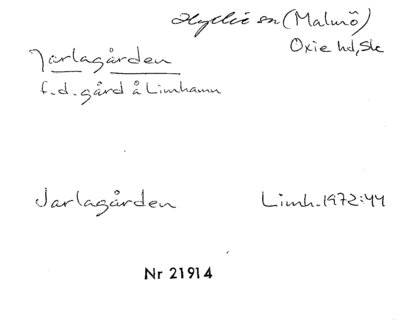 Hyllie sn (Malmö)
Oxie hd, Sk
Jarlagården
f.d. gård å Limhamn
Jarlagården Limh. 1972:44
Nr 21914